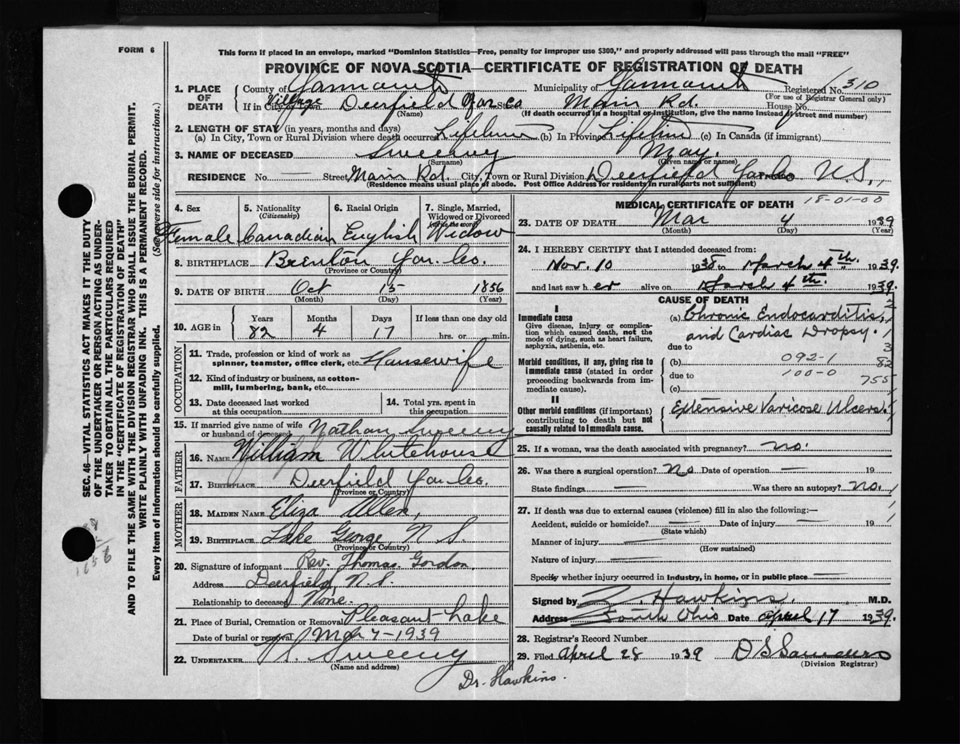 FORM 6
This form if placed in an envelope, marked "Dominion Statistics—Free, penalty for improper use $300," and properly addressed will pass through the mail "FREE"
PROVINCE OF NOVA SCOTIA—CERTIFICATE OF REGISTRATION OF DEATH
1. PLACE OF DEATH
County of Yarmouth Municipality of Yarmouth Registered No. 310
(For use of Registrar General only)
If in City, Village Deerfield Yar Co Street Main Rd. House No.
(Name) (If death occurred in a hospital or institution, give the name instead of street and number)
2. LENGTH OF STAY (in years, months and days)
(a) In City, Town or Rural Division where death occurred Lifetime (b) In Province Lifetime (c) In Canada (if immigrant)
3. NAME OF DECEASED Sweeny May.
(Surname) (Given name or names)
RESIDENCE No. — Street Main Rd. City, Town or Rural Division Deerfield Yar Co N.S.
(Residence means usual place of abode. Post Office Address for residents in rural parts not sufficient)
4. Sex
Female
5. Nationality
(Citizenship)
Canadian
6. Racial Origin
English
7. Single, Married, Widowed or Divorced
Widow
8. BIRTHPLACE Brenton Yar. Co.
(Province or Country)
9. DATE OF BIRTH Oct 15 1856
(Month) (Day) (Year)
10. AGE in
Years Months Days If less than one day old
82 4 17 hrs. or min.
OCCUPATION
11. Trade, profession or kind of work as spinner, teamster, office clerk, etc. Housewife
12. Kind of industry or business, as cotton-mill, lumbering, bank, etc.
13. Date deceased last worked at this occupation
14. Total yrs. spent in this occupation
15. If married give name of wife or husband of deceased Nathan Sweeny
FATHER
16. NAME William Whitehouse
17. BIRTHPLACE Deerfield Yar Co.
(Province or Country)
MOTHER
18. MAIDEN NAME Eliza Allen,
19. BIRTHPLACE Lake George N S.
(Province or Country)
20. Signature of informant Rev. Thomas Gordon
Address Deerfield N.S.
Relationship to deceased None.
21. Place of Burial, Cremation or Removal Pleasant Lake
Date of burial or removal Mar 7-1939
22. UNDERTAKER Sweeny
(Name and address)
Dr. Hawkins.
MEDICAL CERTIFICATE OF DEATH
18-01-00
23. DATE OF DEATH Mar 4 1939
(Month) (Day) (Year)
24. I HEREBY CERTIFY that I attended deceased from:
Nov. 10 1938 to March 4th. 1939.
and last saw her alive on March 4th. 1939.
CAUSE OF DEATH
I
Immediate cause
Give disease, injury or complication which caused death, not the mode of dying, such as heart failure, asphyxia, asthenia, etc.
(a) Chronic Endocarditis, and Cardiac Dropsy.
due to
Morbid conditions, if any, giving rise to immediate cause (stated in order proceeding backwards from immediate cause).
(b) 092-1
due to 100-0
(c)
82
755
II
Other morbid conditions (if important) contributing to death but not causally related to immediate cause.
Extensive Varicose Ulcers.
25. If a woman, was the death associated with pregnancy? no.
26. Was there a surgical operation? No Date of operation — 19
State findings — Was there an autopsy? no.
27. If death was due to external causes (violence) fill in also the following:—
Accident, suicide or homicide? — Date of injury — 19
(State which)
Manner of injury —
(How sustained)
Nature of injury —
Specify whether injury occurred in industry, in home, or in public place —
Signed by Hawkins, M.D.
Address South Ohio Date April 17 1939.
28. Registrar's Record Number
29. Filed April 28 1939 D S Saunders
(Division Registrar)
SEC. 46—VITAL STATISTICS ACT MAKES IT THE DUTY
OF THE UNDERTAKER OR PERSON ACTING AS UNDER-
TAKER TO OBTAIN ALL THE PARTICULARS REQUIRED
IN THE "CERTIFICATE OF REGISTRATION OF DEATH"
AND TO FILE THE SAME WITH THE DIVISION REGISTRAR WHO SHALL ISSUE THE BURIAL PERMIT.
WRITE PLAINLY WITH UNFADING INK. THIS IS A PERMANENT RECORD.
Every item of information should be carefully supplied. (See reverse side for instructions.)
1856